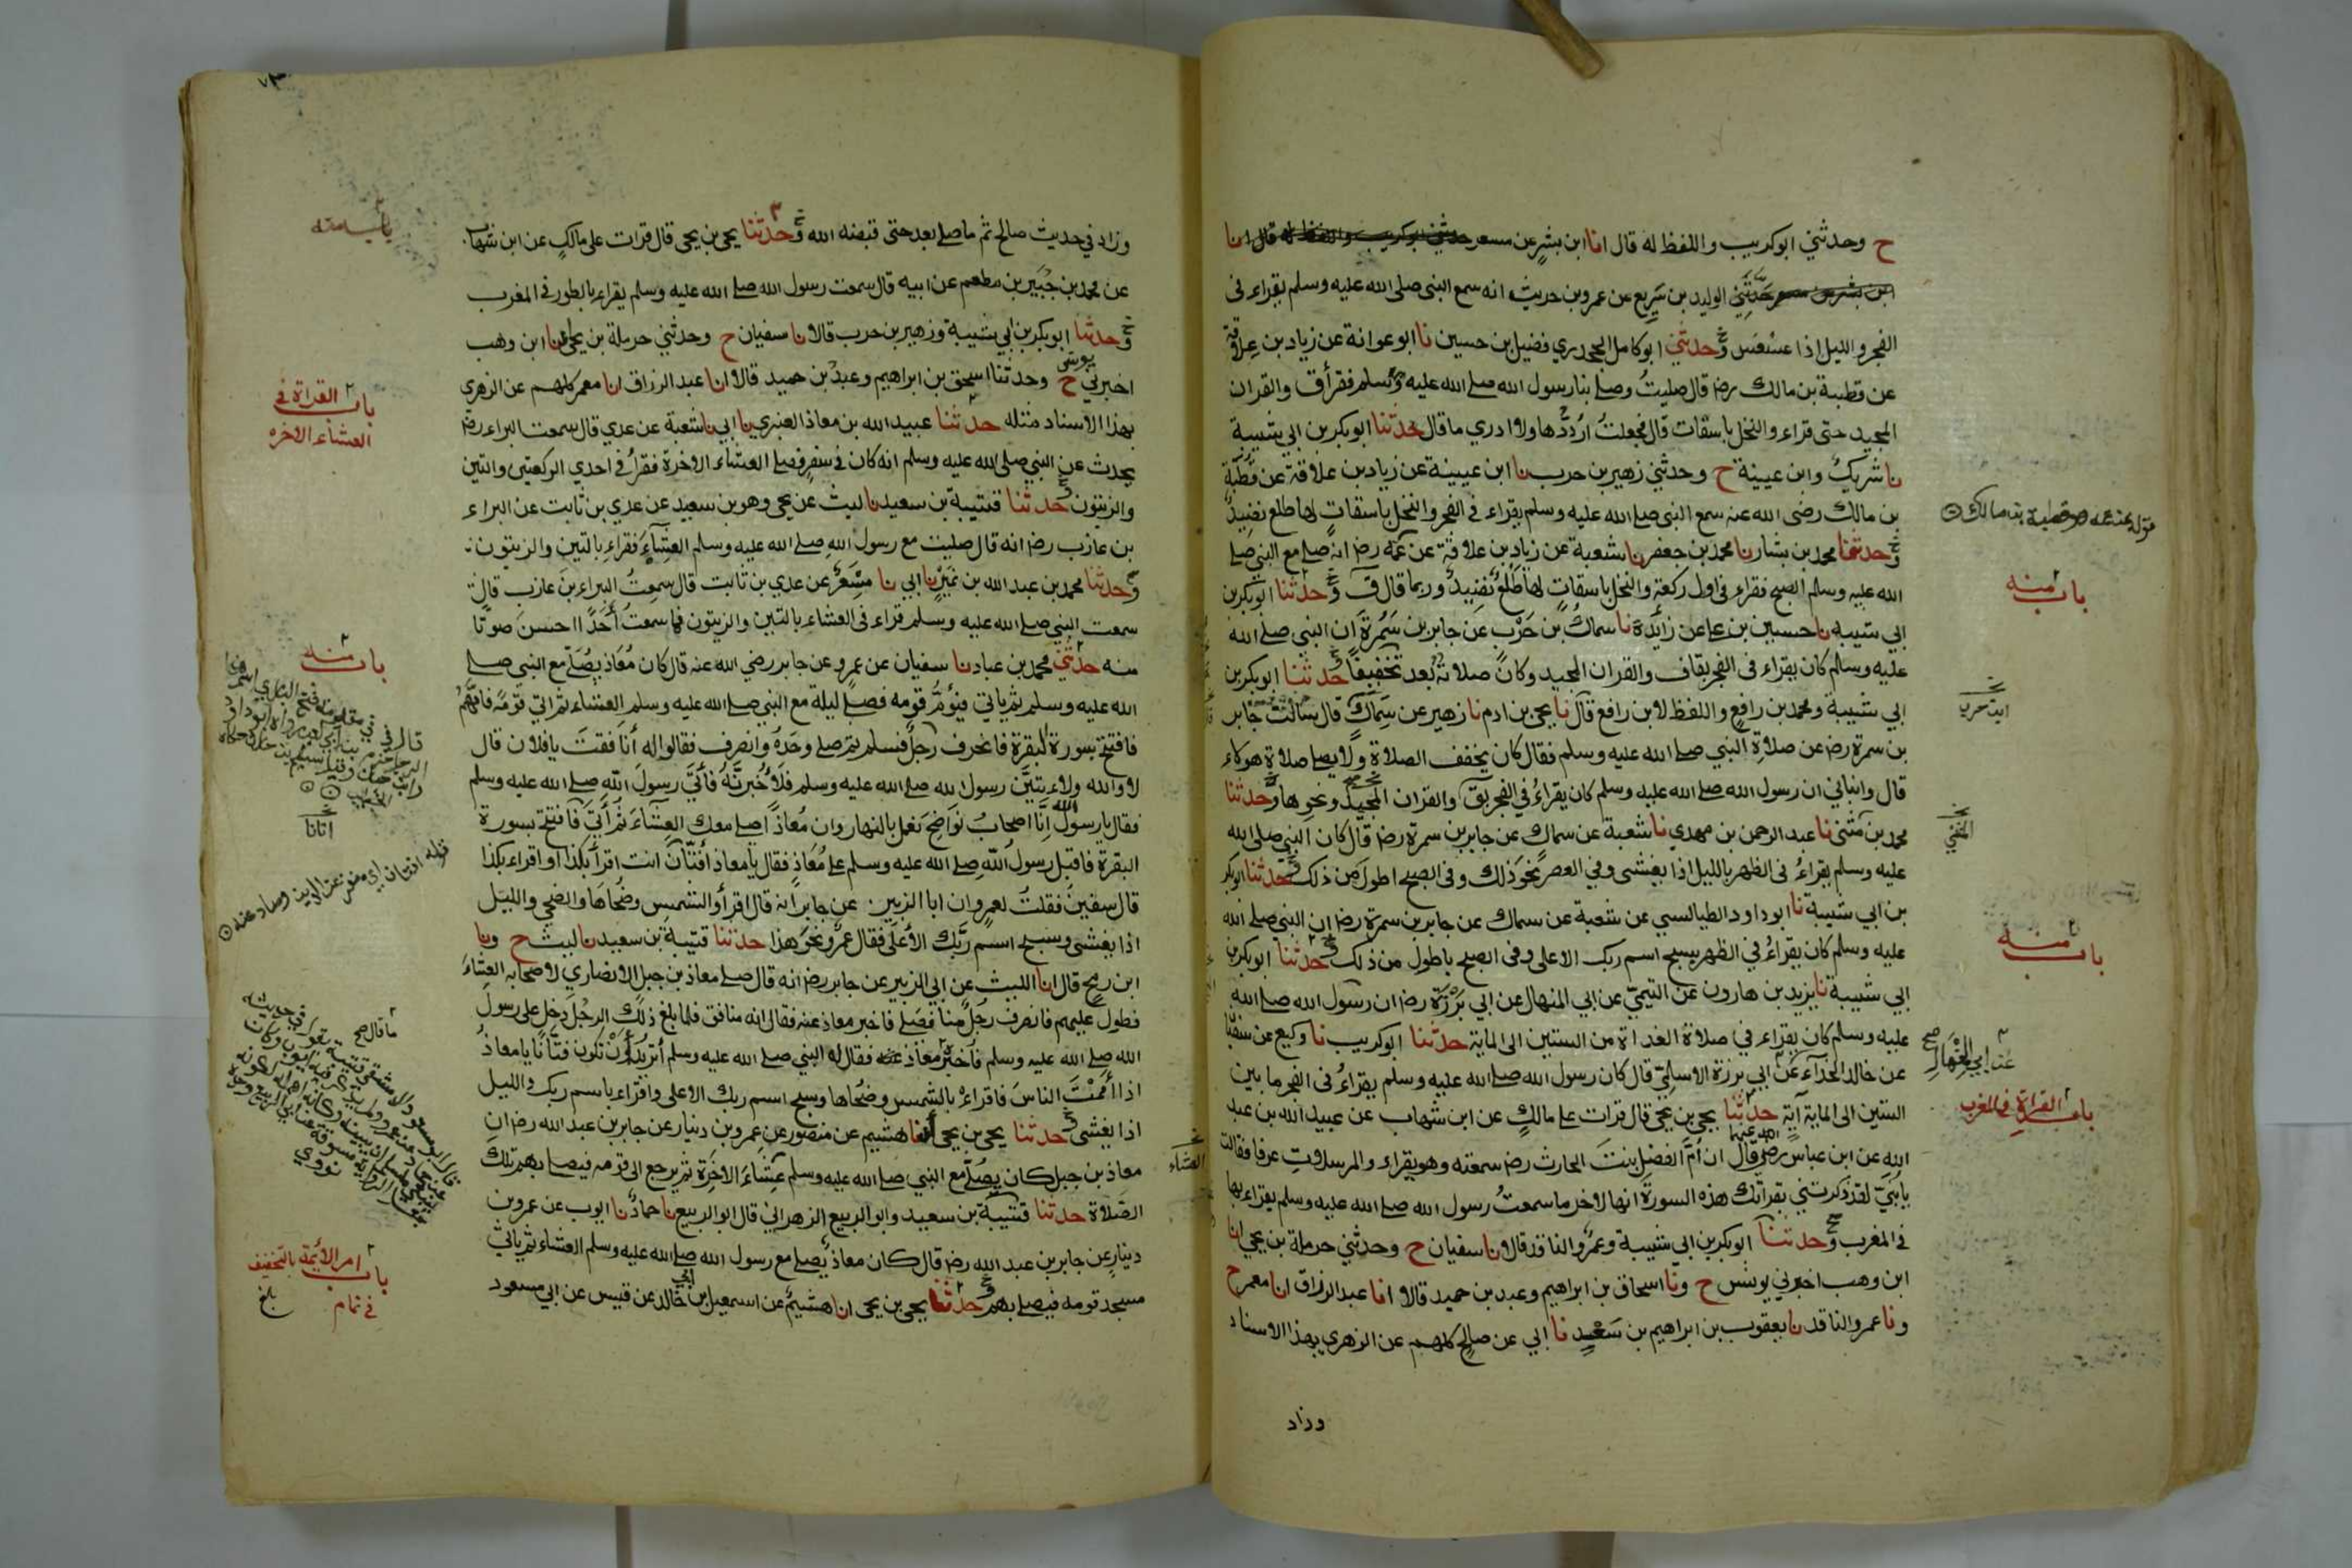 ح وحدثني ابوكريب واللفظ له قال انا ابن بشر عن مسعر حدثني ابوكريب واللفظ له قال انا
ابن بشر عن مسعر حدثني الوليد بن سريع عن عمرو بن حريث انه سمع النبي صلى الله عليه وسلم يقراء في
الفجر والليل اذا عسعس وحدثني ابو كامل الجحدري فضيل بن حسين نا ابو عوانة عن زياد بن علاقة
عن قطبة بن مالك رضه قال صليت وصلى بنا رسول الله صلى الله عليه وسلم فقرأ ق والقران
المجيد حتى قراء والنخل باسقات قال فجعلت ارددها ولا ادري ما قال حدثنا ابوبكر بن ابي شيبة
نا شريك وابن عيينة ح وحدثني زهير بن حرب نا ابن عيينة عن زياد بن علاقة عن قطبة
بن مالك رضى الله عنه سمع النبي صلى الله عليه وسلم يقراء في الفجر والنخل باسقات لها طلع نضيد
وحدثنا محمد بن بشار نا محمد بن جعفر نا شعبة عن زياد بن علاقة عن عمه رضه انه صلى مع النبي صلى
الله عليه وسلم الصبح فقراء في اول ركعة والنخل باسقات لها طلع نضيد وربما قال ق وحدثنا ابوبكر بن
ابي شيبة نا حسين بن علي عن زائدة نا سماك بن حرب عن جابر بن سمرة ان النبي صلى الله
عليه وسلم كان يقراء في الفجر بقاف والقران المجيد وكان صلاته بعد تخفيفا حدثنا ابوبكر بن
ابي شيبة ومحمد بن رافع واللفظ لابن رافع قال نا يحيى بن ادم نا زهير عن سماك قال سالت جابر
بن سمرة رضه عن صلاة النبي صلى الله عليه وسلم فقال كان يخفف الصلاة ولا يصلي صلاة هؤلاء
قال وانباني ان رسول الله صلى الله عليه وسلم كان يقراء في الفجر بق والقران المجيد ونحوها وحدثنا
محمد بن مثنى نا عبد الرحمن بن مهدي نا شعبة عن سماك عن جابر بن سمرة رضه قال كان النبي صلى الله
عليه وسلم يقراء في الظهر بالليل اذا يغشى وفي العصر نحو ذلك وفي الصبح اطول من ذلك حدثنا ابوبكر
بن ابي شيبة نا ابو داود الطيالسي عن شعبة عن سماك عن جابر بن سمرة رضه ان النبي صلى الله
عليه وسلم كان يقراء في الظهر بسبح اسم ربك الاعلى وفي الصبح باطول من ذلك وحدثنا ابوبكر بن
ابي شيبة نا يزيد بن هارون عن التيمي عن ابي المنهال عن ابي برزة رضه ان رسول الله صلى الله
عليه وسلم كان يقراء في صلاة الغداة من الستين الى الماية حدثنا ابوكريب نا وكيع عن سفيان
عن خالد الحذاء عن ابي برزة الاسلمي قال كان رسول الله صلى الله عليه وسلم يقراء في الفجر ما بين
الستين الى الماية آية حدثنا يحيى بن يحيى قال قرات على مالك عن ابن شهاب عن عبيد الله بن عبد
الله عن ابن عباس رضي الله عنهما قال ان ام الفضل بنت الحارث رضه سمعته وهو يقراء والمرسلات عرفا فقالت
يا بني لقد ذكرتني بقراتك هذه السورة انها لاخر ما سمعت رسول الله صلى الله عليه وسلم يقراء بها
في المغرب وحدثنا ابوبكر بن ابي شيبة وعمرو الناقد قالا نا سفيان ح وحدثني حرملة بن يحيى انا
ابن وهب اخبرني يونس ح ونا اسحاق بن ابراهيم وعبد بن حميد قالا انا عبد الرزاق انا معمر ح
ونا عمرو الناقد نا يعقوب بن ابراهيم بن سعيد نا ابي عن صالح كلهم عن الزهري بهذا الاسناد
وزاد
باب منه
ابن حرب
باب منه
عن ابي المنهال صح
باب القراءة في المغرب
وزاد في حديث صالح ثم ما صلى بعد حتى قبضه الله وحدثنا يحيى بن يحيى قال قرات على مالك عن ابن شهاب
عن محمد بن جبير بن مطعم عن ابيه قال سمعت رسول الله صلى الله عليه وسلم يقراء بالطور في المغرب
وحدثنا ابوبكر بن ابي شيبة وزهير بن حرب قالا نا سفيان ح وحدثني حرملة بن يحيى انا ابن وهب
اخبرني يونس ح وحدثنا اسحق بن ابراهيم وعبد بن حميد قالا انا عبد الرزاق انا معمر كلهم عن الزهري
بهذا الاسناد مثله حدثنا عبيد الله بن معاذ العنبري نا ابي نا شعبة عن عدي قال سمعت البراء رضه
يحدث عن النبي صلى الله عليه وسلم انه كان في سفر فصلى العشاء الاخرة فقرأ في احدي الركعتين والتين
والزيتون حدثنا قتيبة بن سعيد نا ليث عن يحيى وهو بن سعيد عن عدي بن ثابت عن البراء
بن عازب رضه انه قال صليت مع رسول الله صلى الله عليه وسلم العشاء فقراء بالتين والزيتون
وحدثنا محمد بن عبد الله بن نمير نا ابي نا مسعر عن عدي بن ثابت قال سمعت البراء بن عازب قال
سمعت النبي صلى الله عليه وسلم قراء في العشاء بالتين والزيتون فما سمعت أحدا احسن صوتا
منه حدثني محمد بن عباد نا سفيان عن عمرو عن جابر رضي الله عنه قال كان معاذ يصلي مع النبي صلى
الله عليه وسلم ثم ياتي فيؤم قومه فصلى ليلة مع النبي صلى الله عليه وسلم العشاء ثم اتي قومه فامهم
فافتتح بسورة البقرة فانحرف رجل فسلم ثم صلى وحده وانصرف فقالوا له أنافقت يا فلان قال
لا والله ولاءتين رسول الله صلى الله عليه وسلم فلأخبرنه فأتى رسول الله صلى الله عليه وسلم
فقال يا رسول الله انا اصحاب نواضح نعمل بالنهار وان معاذا صلى معك العشاء ثم أتى فافتتح بسورة
البقرة فاقبل رسول الله صلى الله عليه وسلم على معاذ فقال يا معاذ أفتان انت اقرأ بكذا واقراء بكذا
قال سفين فقلت لعمرو ان ابا الزبير عن جابر انه قال اقرأ والشمس وضحاها والضحى والليل
اذا يغشى وسبح اسم ربك الأعلى فقال عمرو نحو هذا حدثنا قتيبة بن سعيد نا ليث ح ونا
ابن رمح قال انا الليث عن ابي الزبير عن جابر رضه انه قال صلى معاذ بن جبل الانصاري لاصحابه العشاء
فطول عليهم فانصرف رجل منا فصلى فاخبر معاذ عنه فقال انه منافق فلما بلغ ذلك الرجل دخل على رسول
الله صلى الله عليه وسلم فأخبره معاذ فقال له النبي صلى الله عليه وسلم أتريد أن تكون فتانا يا معاذ
اذا أممت الناس فاقراء بالشمس وضحاها وسبح اسم ربك الاعلى واقراء باسم ربك والليل
اذا يغشى حدثنا يحيى بن يحيى أنا هشيم عن منصور عن عمرو بن دينار عن جابر بن عبد الله رضه ان
معاذ بن جبل كان يصلي مع النبي صلى الله عليه وسلم عشاء الاخرة ثم يرجع الى قومه فيصلي بهم تلك
الصلاة حدثنا قتيبة بن سعيد وابو الربيع الزهراني قال ابو الربيع نا حماد نا ايوب عن عمرو بن
دينار عن جابر بن عبد الله رضه قال كان معاذ يصلي مع رسول الله صلى الله عليه وسلم العشاء ثم ياتي
مسجد قومه فيصلي بهم حدثنا يحيى بن يحيى انا هشيم عن اسمعيل بن ابي خالد عن قيس عن ابي مسعود
باب القراة في
العشاء الاخره
باب منه
قوله افتان اي منفر عن الدين وصاد عنه
العشاء
باب امر الأئمة بالتخفيف
في تمام
بلغ